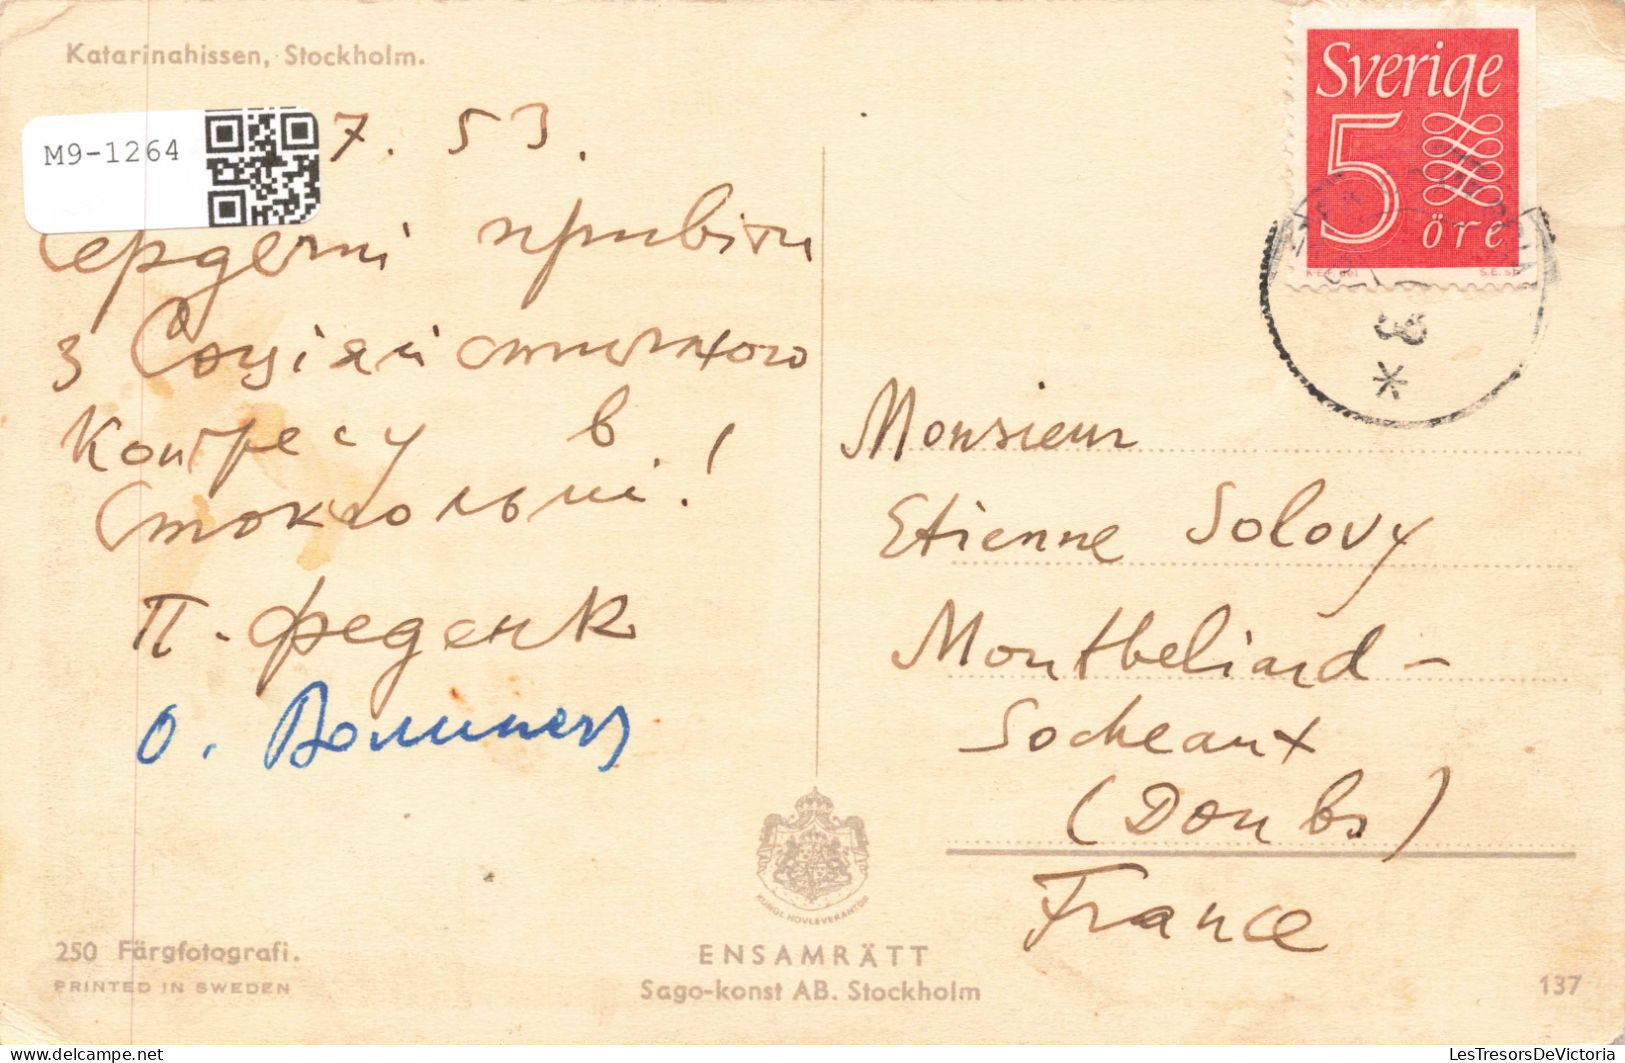 Katarinahissen, Stockholm.
M9-1264
7. 53.
Сердечні привіти
з Соціялістичного
Конгресу в
Стокгольмі!
П. Феденк
О.
Sverige
5
öre
S.E. sc
3
*
Monsieur
Etienne Solovy
Montbeliard -
Sochaux
(Doubs)
France
KUNGL. HOVLEVERANTÖR
250 Färgfotografi.
PRINTED IN SWEDEN
ENSAMRÄTT
Sago-konst AB. Stockholm
137
LesTresorsDeVictoria
http://www.delcampe.net